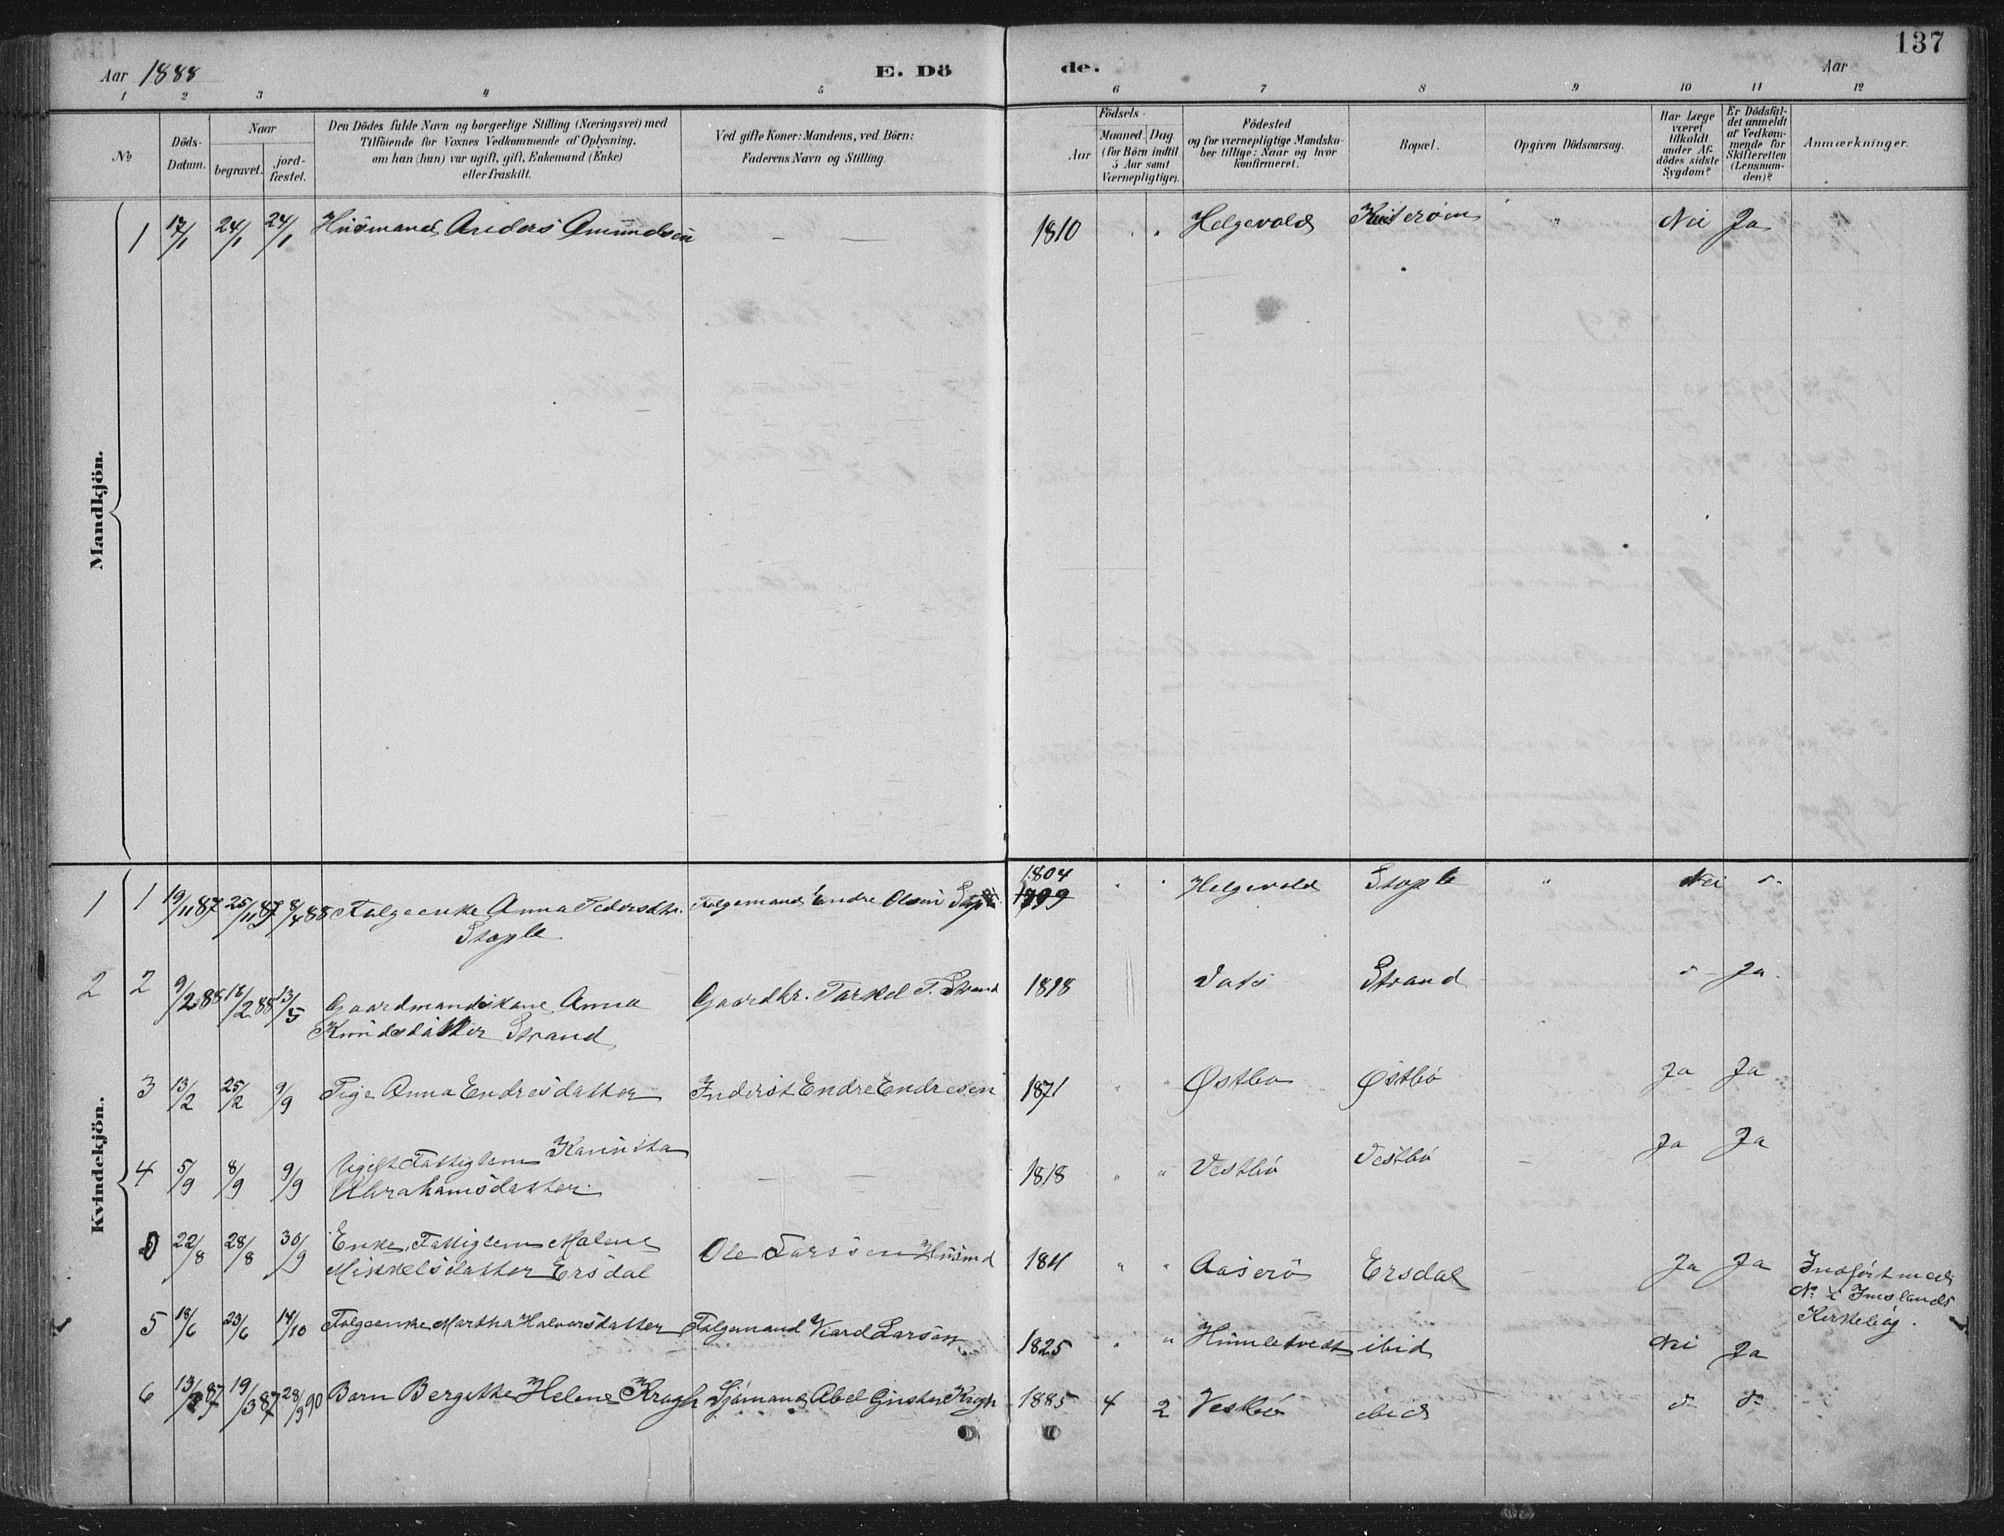 137
Aar 1888 E. Döde. Aar
1 2 3 4 5 6 7 8 9 10 11 12
No
Döds-Datum.
Naar
begravet.
jord-fæstet.
Den Dödes fulde Navn og borgerlige Stilling (Næringsvei) med
Tilföiende for Voxnes Vedkommende af Oplysning,
om han (hun) var ugift, gift, Enkemand (Enke)
eller fraskilt.
Ved gifte Koner: Mandens, ved Börn:
Faderens Navn og Stilling.
Födsels-
Aar
Maaned Dag
(for Börn indtil
5 Aar samt
Værnepligtige).
Födested
og for værnepligtige Mandska-
ber tillige: Naar og hvor
konfirmeret.
Bopæl.
Opgiven Dödsaarsag.
Har Læge
været
tilkaldt
under Af-
dödes sidste
Sygdom?
Er Dödsfal-
det anmeldt
af Vedkom-
mende for
Skifteretten
(Lensman-
den)?
Anmærkninger.
Mandkjön.
1 17/1 24/1 24/1 Husmand Anders Amundsen — — 1810 " " Helgevold " Nei Ja
Kvindekjön.
1 1 19/11 87 25/11 87 8/4 88 Folgeenke Anna Pedersdtr. Folgemand Endre Olsen 1804 " " Helgevold Stople " Nei do
Stople 1799
2 2 9/2 88 18/2 88 13/5 Gaardmandskone Anna Gaardbr. Torkel T. Strand 1818 Vats Strand do Ja
Knudsdatter Strand
3 13/2 25/2 9/9 Pige Anna Endresdatter Inderst Endre Endresen 1871 " " Østbø Østbø Ja Ja
4 5/9 8/9 9/9 Ugift Fattiglem — — 1818 " " Vestbø Vestbø — Ja Ja
Abrahamsdatter
0 22/8 28/8 30/9 Enke, Fattiglem Malene Ole Husmd 1811 " " Aaserø Ersdal — Ja Ja Indført med
Mikkelsdatter Ersdal No i Imslands
Kirkebog.
5 18/6 23/6 14/10 Folgeenke Martha Halvorsdatter Folgemand Larsen 1825 " " Humletvedt ibid Nei Ja
6 13/3 87 19/3 87 28/9 90 Barn Bergitthe Helene Kragh Sjømand Abel Kragh 1885 4 2 Vestbø ibid do do